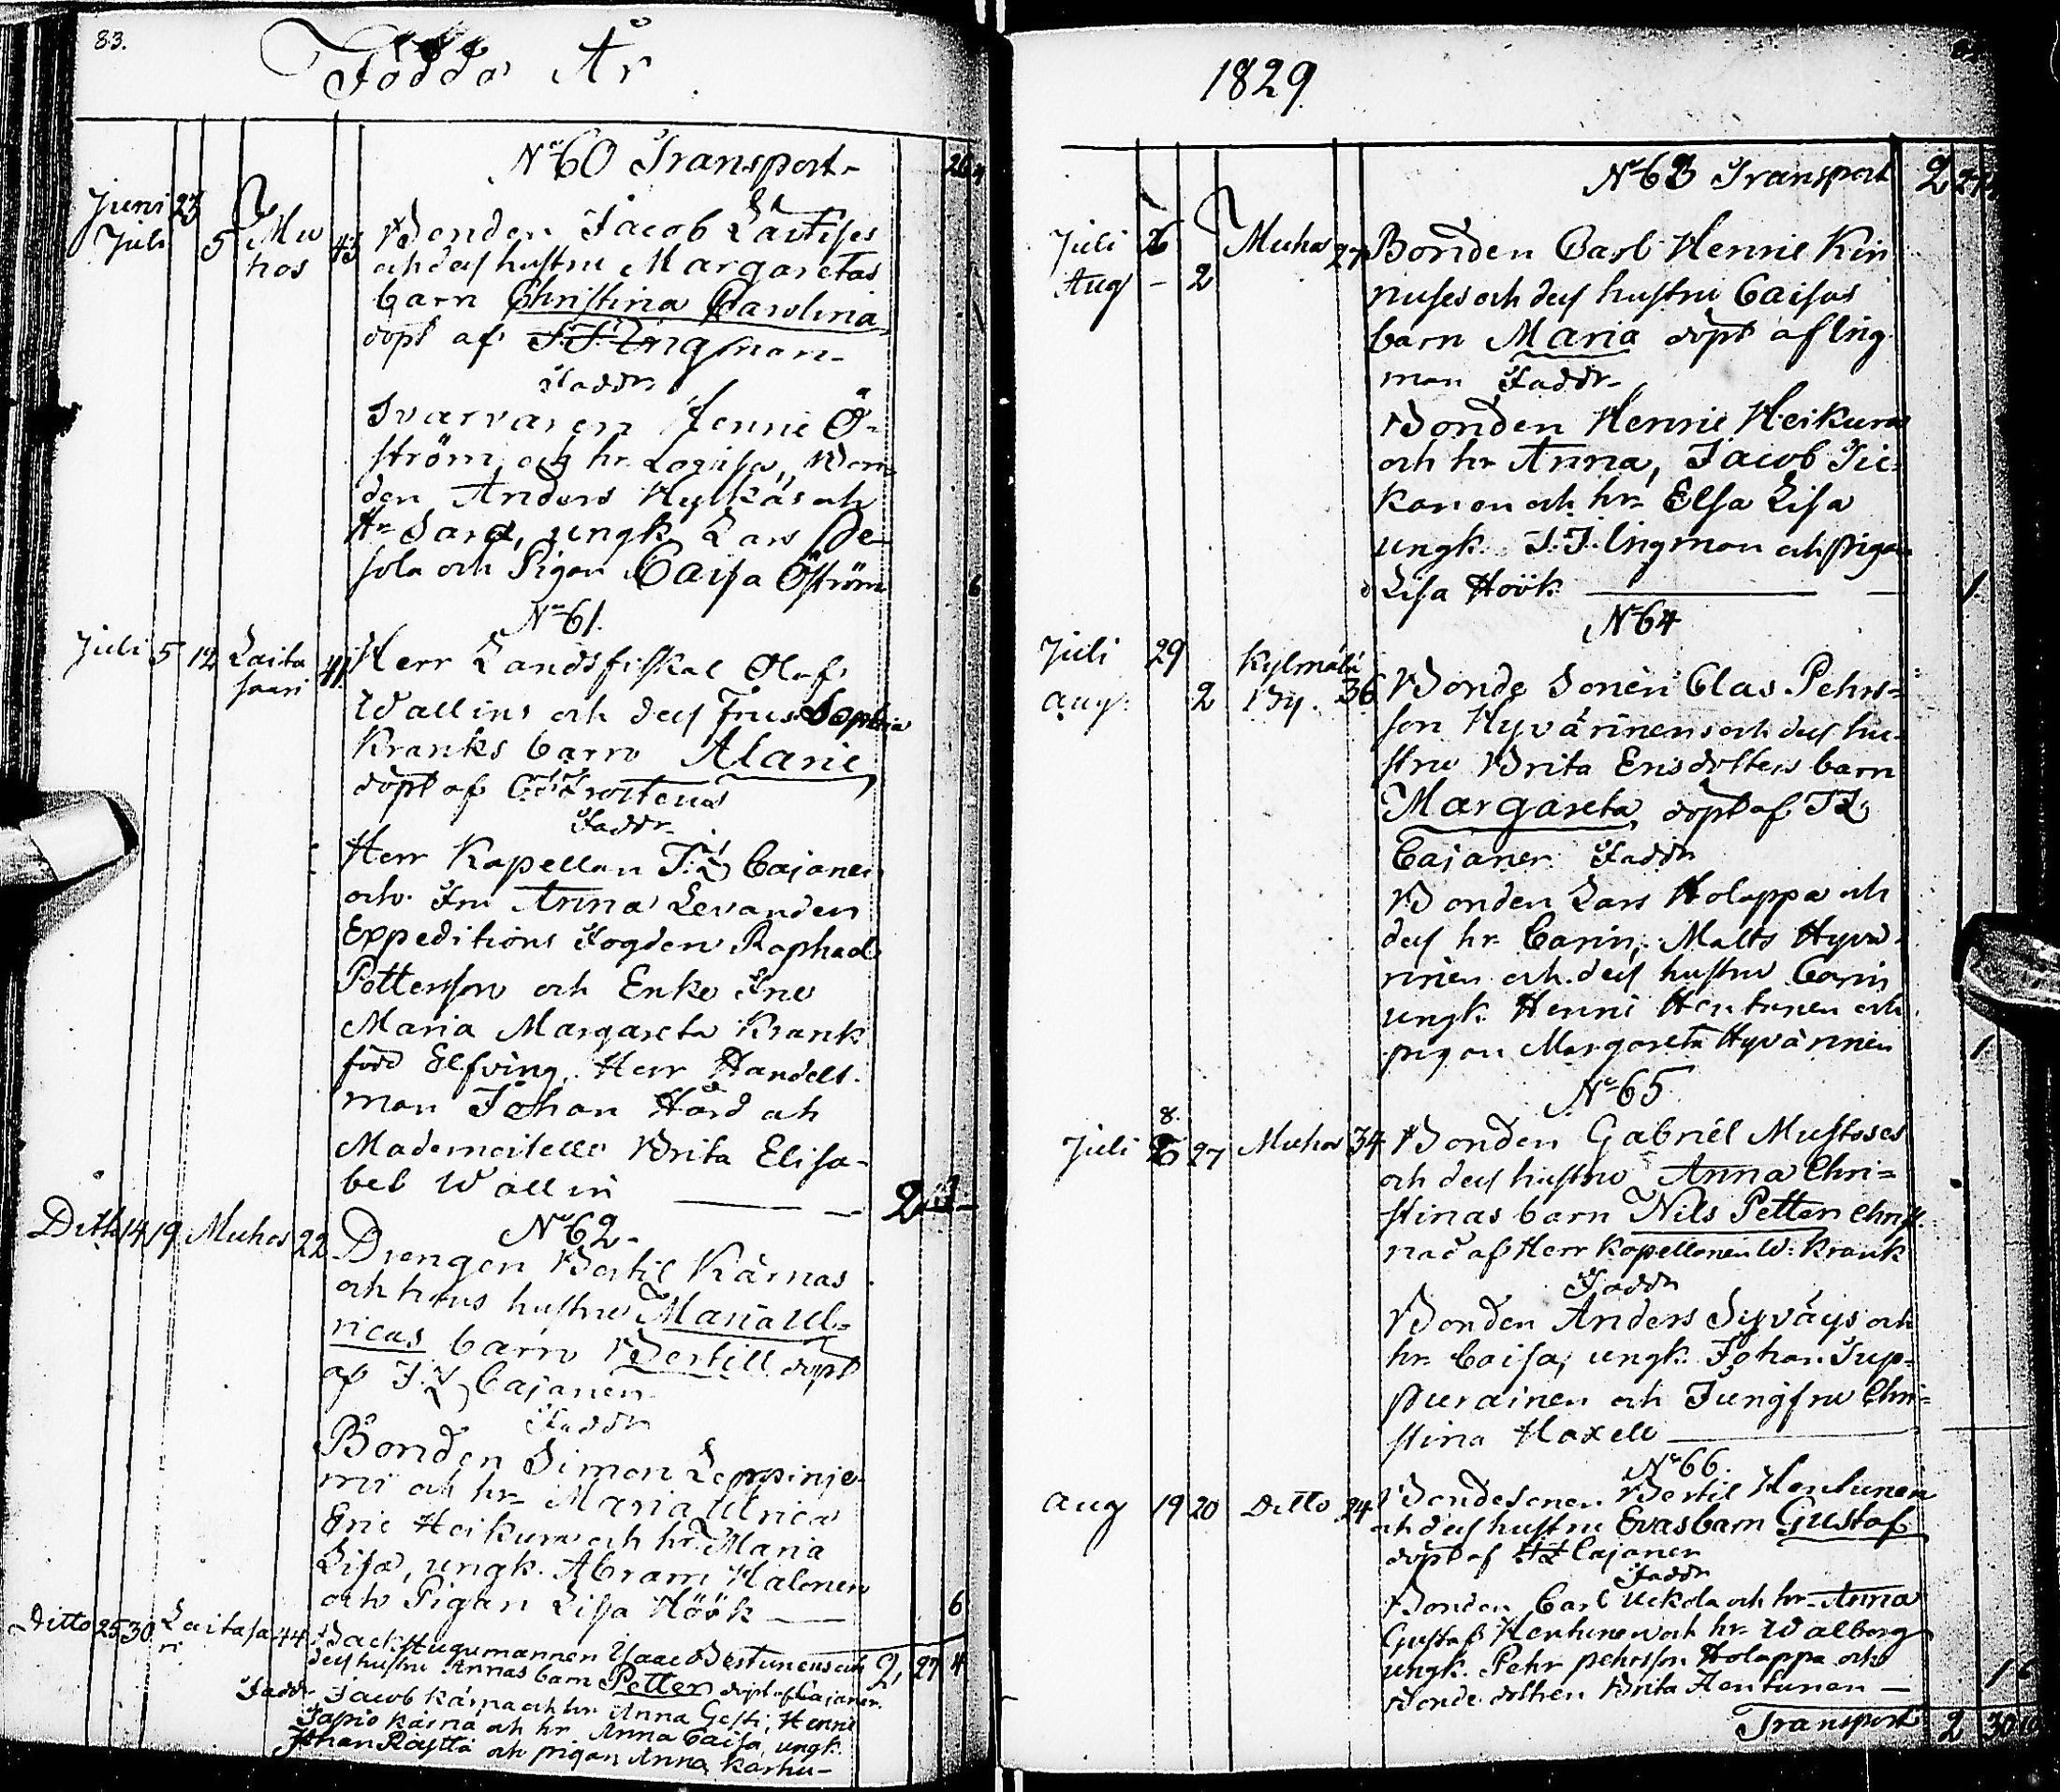 83.
Födde År
No 60 Transport
Juni 23
Juli 5 Mu
hos 43 Bonden Jacob
och dess hustru Margaretas
barn Christina Carolina
döpt af J.J. Ungman
Faddr
Svarvaren Henric Ö-
ström och hr Lovisa, Bon-
den Anders Hylkäs och
Hr Sara, ungk Lars
och Pigan Caisa Öström
6
No 61.
Juli 5 12 Laita
saari 41 Herr Landsfiskal Olof
Wallins och dess Frus Sophia
Kranks barn
döpt af
Faddr
Herr Kapellan J.L. Cajaner
och Fru Anna Levanden
Expeditions Fogden Raphael
Pettersson och Enke Fru
Maria Margareta Krank
född Elfving, Herr Handels-
man Johan Hård och
Mademoiselle Brita Elisa-
bet Wallin
No 62
Ditto 14 19 Muhos 22 Drengen Bertil Kärnas
och hans hustru Maria Ul-
ricas barn Bertill döpt
af J.L. Cajanen
Faddr
Bonden Simon Leppinje-
mi och hr Maria Ulrica
Eric Heikura och hr Maria
Lisa, ungk. Abram Halonen
och Pigan Lisa Höök
6
Ditto 25 30 Laitasa
ri 44 Backstugumannen Isaac
dess hustru Annas barn Petter döpt af Cajaner. 2 27 4
Faddr Jacob Kärna och hr Anna Henric
Kärnä och hr Anna Caisa, ungk.
Johan och pigan Anna Karhu-
1829
No 63 Transport 2
Juli 26 Muhos 27 Bonden Carl Henric Kin
Aug - 2 nuses och dess hustru Caisas
barn Maria döpt af Ung-
man Faddr
Bonden Henric Heikura
och hr Anna, Jacob Tic-
kanen och hr Elsa Lisa
ungk. J.J. Ungman och pigan
Lisa Höök
1
No 64
Juli 29 Kylmälä
Aug. 2 By. 36 Bonde Sonen Clas Pehrs-
son Hyvärinens och dess hu-
stru Brita Ersdotters barn
Margareta, döpt af JL
Cajaner Faddr
Bonden Lars Holappa och
dess hr Carin, Matts Hyvä-
rinen och dess hustru Carin
ungk. Henric Hentunen och
pigan Margareta Hyvärinen
1
No 65
8.
Juli 26 27 Muhos 34 Bonden Gabriel Mustoses
och dess hustru Anna Chri-
stinas barn Nils Petter Christ-
nad af Herr Kapellanen W. Krank
Faddr
Bonden Anders Syväys och
hr Caisa, ungk. Johan Sup-
purainen och Jungfru Chri-
stina Haxell
No 66.
Aug 19 20 Ditto 24 Bondesonen Bertil Hentunen
och dess hustru Evas barn Gustaf
döpt af JL Cajaner
Faddr
Bonden Carl Uckola och hr Anna
Gustaf Hentunen och hr Walborg
ungk. Pehr Pehrsson Holappa och
Bonde dottren Brita Hentunen
1 6
Transport 2 30